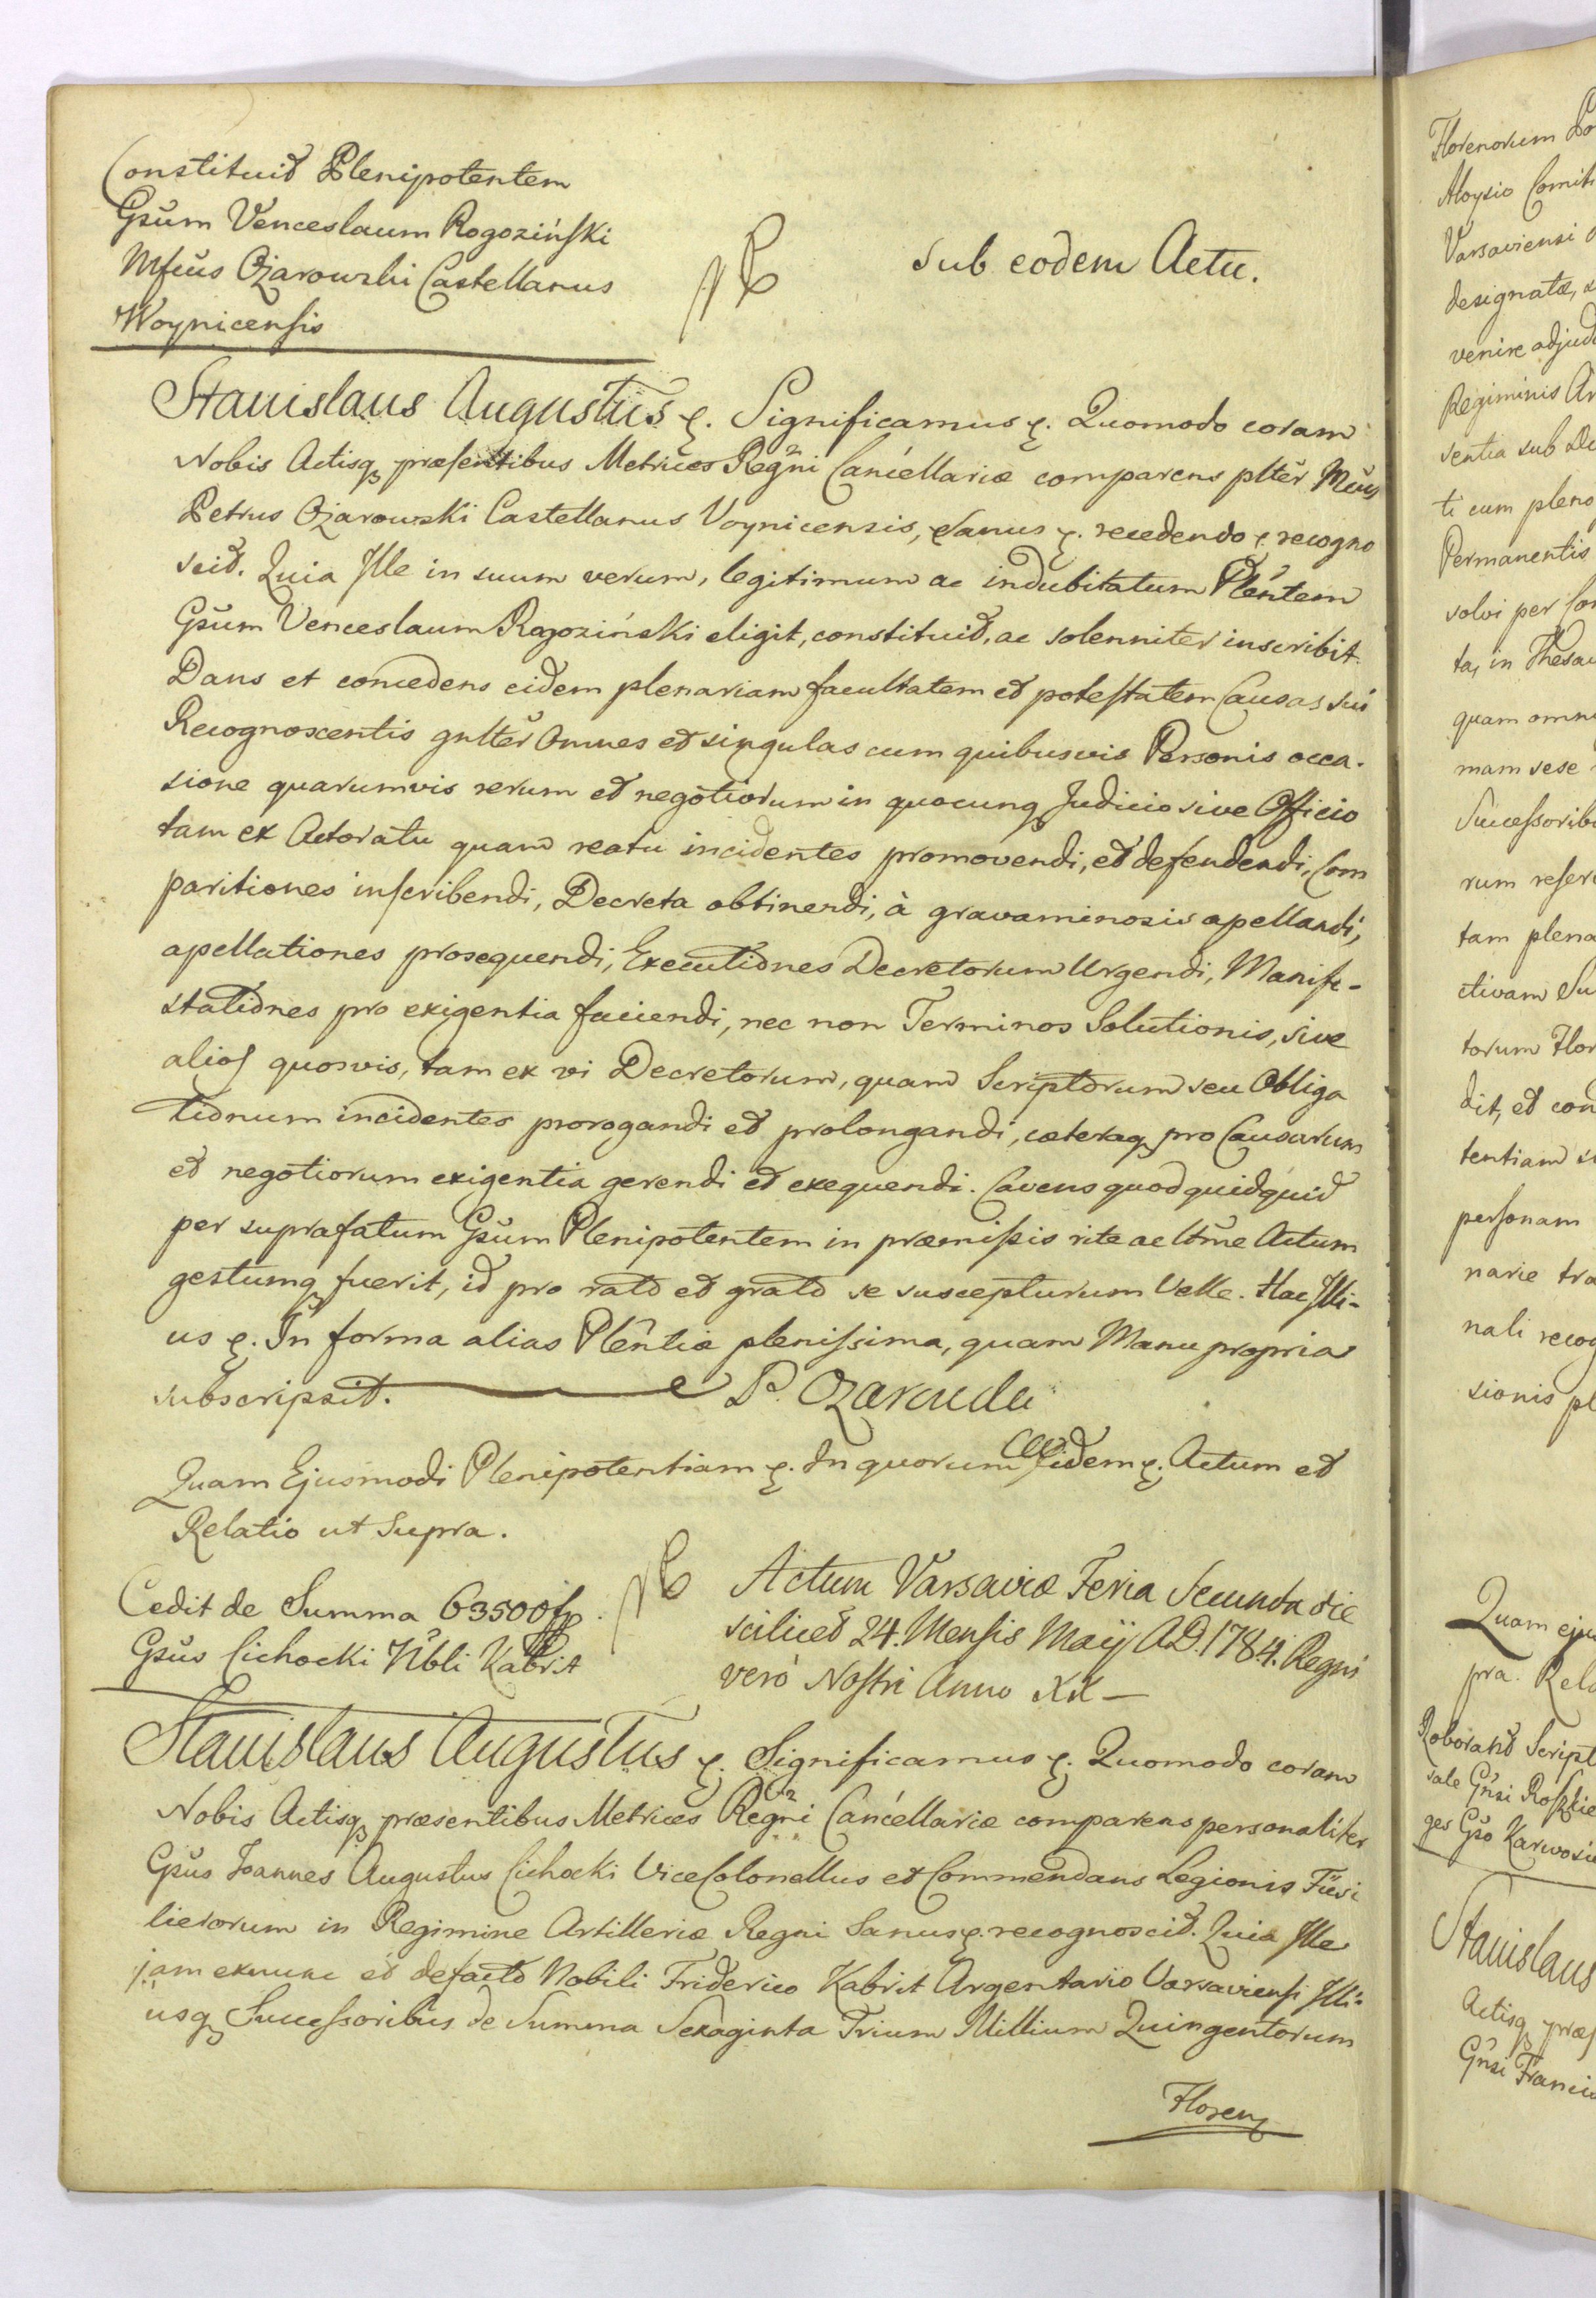 Constituit Plenipotentem
Gsum Venceslaum Rogoziński
Mfcus Ożarowski Castellanus
Woynicensis
sub eodem Actu.
Stanislaus Augustus &. Significamus &. Quomodo coram
Nobis Actisq præsentibus Metrices Regni Cancellariæ comparens plter Mcus
Petrus Ożarowski Castellanus Voynicensis, Sanus &. recedendo &. recogno
scit. Quia Ille in suum verum, legitimum ac indubitatum Plentem
Gsum Venceslaum Rogoziński eligit, constituit, ac solenniter inscribit.
Dans et concedens eidem plenariam facultatem et potestatem Causas sui
Recognoscentis gnlter Omnes et singulas cum quibusvis Personis occa-
sione quarumvis rerum et negotiorum in quocunq Judicio sive Officio
tam ex Actoratu quam reatu incidentes promovendi, et defendendi, Com
paritiones inscribendi, Decreta obtinendi, à gravaminosis apellandi,
apellationes prosequendi, Executiones Decretorum Urgendi, Manife-
stationes pro exigentia faciendi, nec non Terminos Solutionis, sive
alios quosvis, tam ex vi Decretorum, quam Scriptorum seu Obliga
tionum incidentes prorogandi et prolongandi, cæteraq pro Causarum
et negotiorum exigentia gerendi et exequendi. Cavens quod quidquid
per suprafatum Gsum Plenipotentem in præmissis rite ac ltme Actum
gestumq fuerit, id pro rato et grato se suscepturum Velle. Hac Illi-
us &. In forma alias Plentiæ plenissima, quam Manu propria
subscripsit. P. Ożarowski
Quam Ejusmodi Plenipotentiam &. In quorum fidem &. Actum et
Relatio ut Supra.
Cedit de Summa 63500 fp.
Gsus Cichocki Nbli Kabrit
Actum Varsaviæ Feria Secunda die
scilicet 24. Mensis Maij A.D. 1784. Regni
vero Nostri Anno XX —
Stanislaus Augustus &. Significamus &. Quomodo coram
Nobis Actisq præsentibus Metrices Regni Cancellariæ comparens personaliter
Gsus Joannes Augustus Cichocki ViceColonellus et Commendans Legionis Fusi
lierorum in Regimine Artilleriæ Regni Sanus &. recognoscit. Quia Ille
jam exnunc et defacto Nobili Friderico Kabrit Argentario Varsaviensi Illi-
usq Successoribus de Summa Sexaginta Trium Millium Quingentorum
Floren
Florenorum
Aloysio Comit
Varsaviensi
designatæ,
venire adjud
Regiminis Ar
sentia sub De
ti cum pleno
Permanentis
solvi per Com
ta, in Thesau
quam omni
mam sese
Successorib
rum reserv
tam plena
ctivam Su
torum Flor
dit, et con
tentiam
personam
narie tra
nali recog
sionis pl
Quam eju
pra. Rela
Roborand Script
sale Gnsi Roszkie
ges Gso Karwosi
Stanislaus
Actisq præs
Gnsi Franci